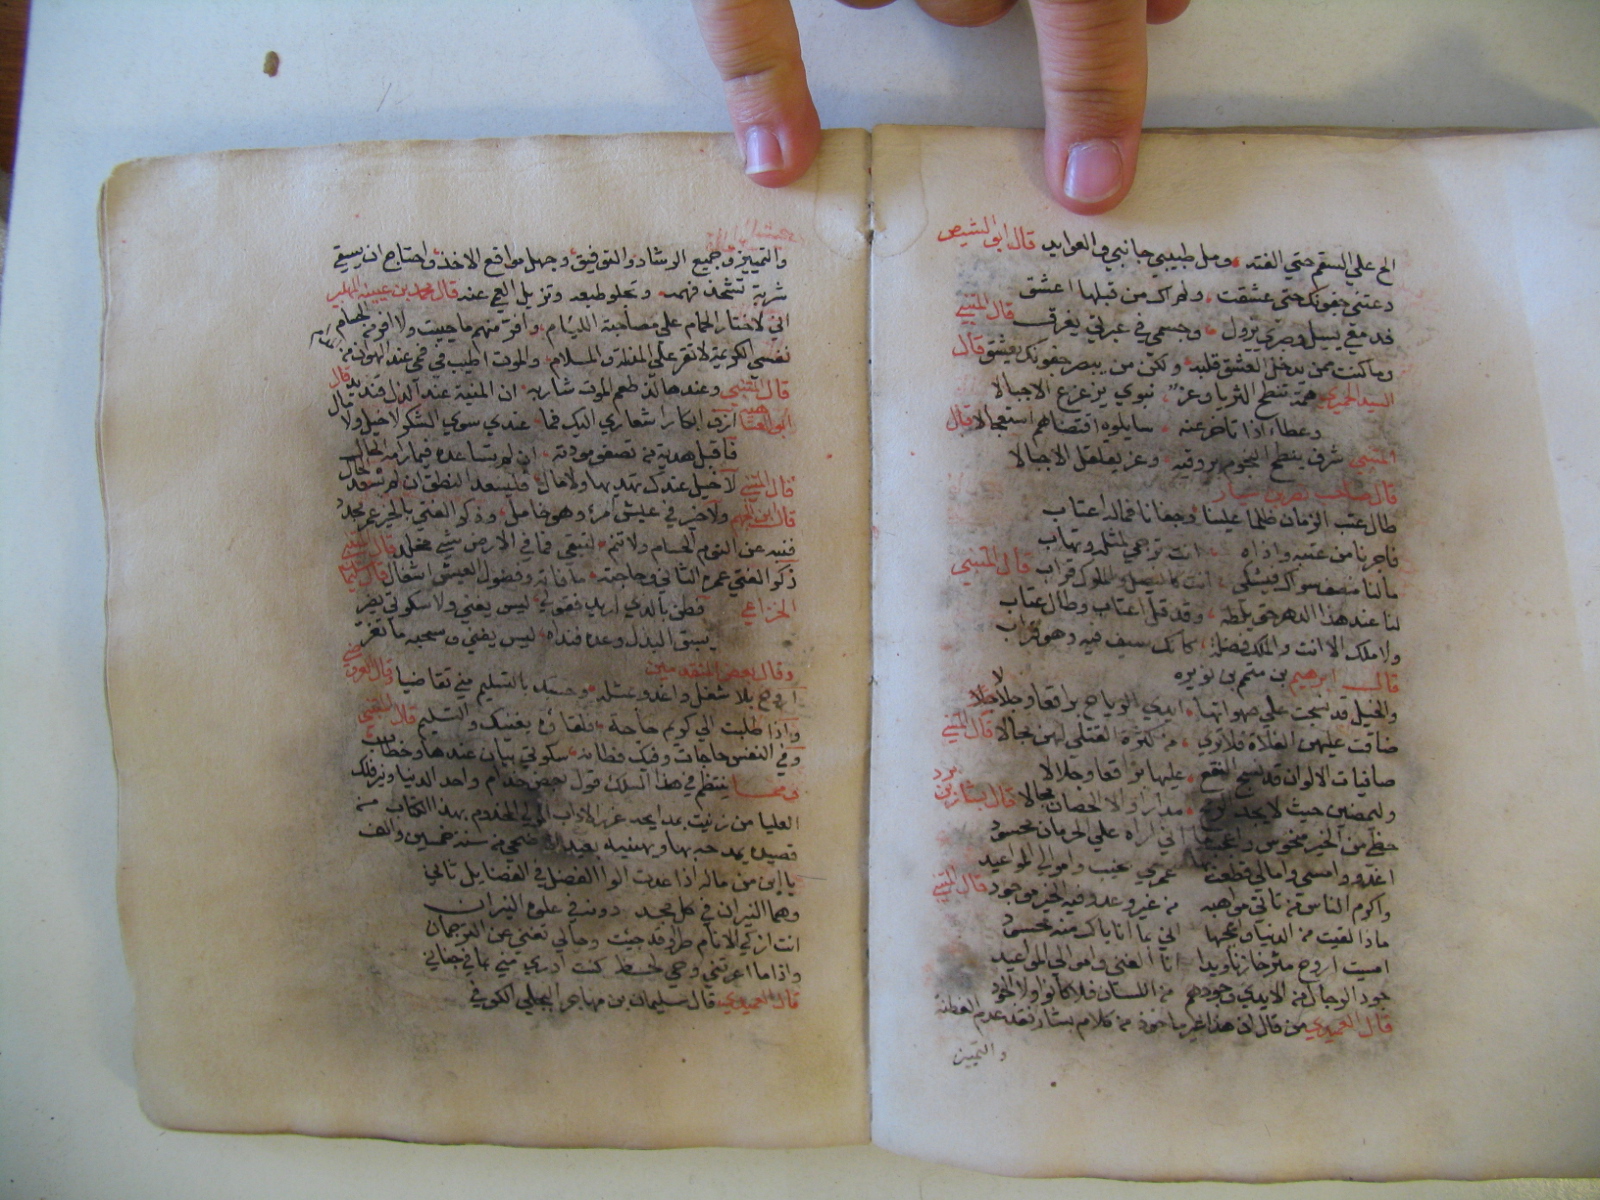 الح علي السقم حتي الفته ومل طبيبي جانبي والعوايد قال ابو الشيص
دعتني جفونك حتي عشقت ولم اك من قبلها اعشق
فدمعي يسيل وصبري يزول وجسمي في عبرتي يغرق قال المتنبي
وما كنت ممن يدخل العشق قلبه ولكن من يبصر جفونك يعشق قال
السيد الحميري همة تنطح الثريا وعز نبوي يزعزع الاجبالا
وعطاء اذا تاخر عنه سايلوه اقتضاهم استعجالا قال
المتنبي شرف ينطح النجوم بروقيه وعز يقلقل الاجبالا
قال صاحب نصر بن سيار
طال عتب الزمان ظلما علينا وجفانا فماله اعتاب
فاجرنا من عتبه واذاه انت ترجي لمثله وتهاب
ما لنا منصف سواك فيشكي انت كالسيف والملوك قراب قال المتنبي
لنا عند هذا الدهر حق يلطه وقد قل اعتاب وطال عتاب
ولا ملك الا انت والملك فضلة كانك سيف فيه وهو قراب
قال ابرهيم بن متمم بن نويره
والخيل قد نسجت علي صهواتها ايدي الرياح براقعا وجلالا
ضاقت عليهن الفلاة فلا تري من كثرة القتلي لهن مجالا قال المتنبي
صافيات الالوان قد نسج النقع عليها براقعا وجلالا
ولتمضين حيث لا يجد الرمح مدارا ولا الحصان مجالا قال بشار بن برد
حظي من الخير منحوس واعجب ما اني اراه علي الحرمان محسود
اغدو وامسي وامالي قطعت بها عمري بخيب واموالي المواعيد
واكرم الناس من تاتي مواهبه من غير وعد وفيه الخير موجود قال المتنبي
ماذا لقيت من الدنيا واعجبها اني بما انا باك منه محسود
امسيت اروح مثر خازنا ويدا انا الغني واموالي المواعيد
جود الرجال من الايدي وجودهم من اللسان فلا كانوا ولا الجود
قال العميدي من قال ان هذا غير ماخوذ من كلام بشار فقد عدم الفطنة
والتمييز
والتمييز وجميع الرشاد والتوفيق وجهل مواقع الاخذ واحتاج ان يسقي
شربة تشحذ فهمه وتجلو طبعه وتزيل العي عنه قال محمد بن عيينه المهلبي
اني لاختار الحمام علي مصاحبة الليام وافر منهم ما حييت ولا افر من الحمام
نفسي الكريمة لا تقر علي المذلة والملام والموت اطيب في فمي عند الهوان من
قال المتنبي وعندها لذ طعم الموت شاربه ان المنية عند الذل قنديد قال
ابو العتاهيه ازف ابكار اشعاري اليك فما عندي سوي الشكر لا خيل ولا مال
فاقبل هدية من تصفو مودته ان لم يساعده فيما رامه الحال
قال المتنبي لا خيل عندك تهديها ولا مال فليسعد النطق ان لم تسعد الحال
قال ابن الجهم ولا خير في عيش امرء وهو خامل وذكر الفتي بالخير عمر مجدد
فنبه عن النوم الحسام ولا تنم لتبقي فما في الارض شيء مخلد قال المتنبي
ذكر الفتي عمره الثاني وحاجته ما فاته وفضول العيش اشغال
الخزاعي فطن بالذي اريد فقولي ليس يغني ولا سكوتي يضر
يسبق البذل وعده فنداه
وقال بعض المتقدمين
اروح بلا شغل واغدو بمثله وحسبك بالتسليم مني تقاضيا
واذا طلبت الي كريم حاجة فلقاؤه يغنيك والتسليم قال المتنبي
وفي النفس حاجات وفيك فطانه سكوتي بيان عندها وخطاب
ومما ينتظم في هذا السلك قول بعض خدام واحد الدنيا ونير فلك
العليا من زينت بمدايحه غرر الاداب المولي المخدوم بهذا الكتاب من
قصيده يمدحه بها ويهنيه بعيد الاضحي من سنه خمسين والف
يا ابن من ماله اذا عدت الوا الفضل في الفضايل ثاني
وهما النيران في كل مجد دونه في علوه النيران
انت ازكي الانام طرا وقد جيت وحالي تغني عن الترجمان
واذا ما اعرتني وحي لحظ كنت ادري مني بما في جناني
قال العميدي قال سليمان بن مهاجر البجلي الكوفي